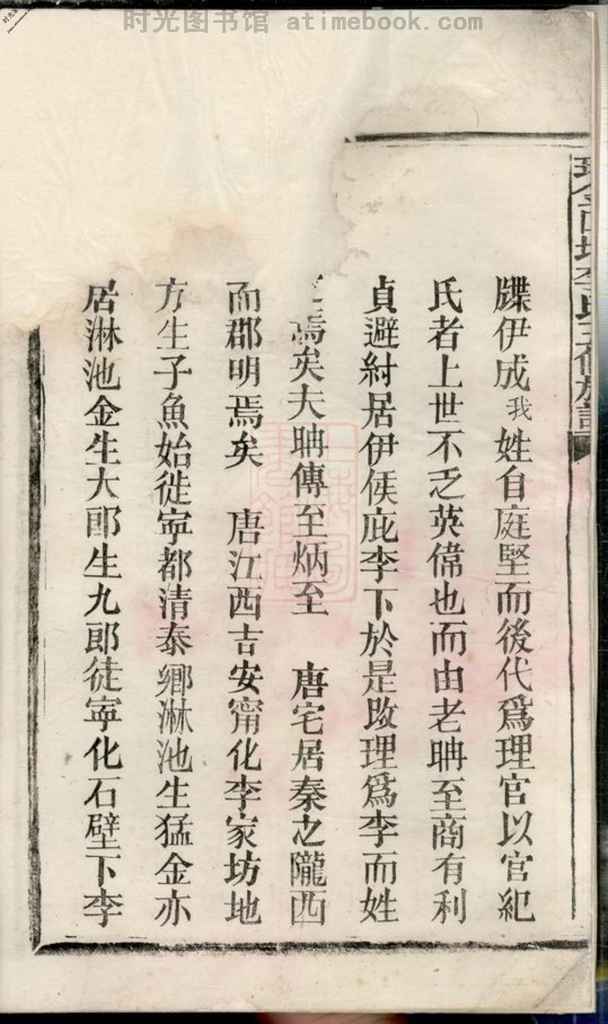 时光图书馆 atimebook.com
李氏三修族譜
牒伊成我姓自庭堅而後代爲理官以官紀
氏者上世不乏英偉也而由老聃至商有利
貞避紂居伊侯庇李下於是改理爲李而姓
焉矣夫聃傳至炳至 唐宅居秦之隴西
而郡明焉矣 唐江西吉安甯化李家坊地
方生子魚始徙寧都清泰鄉淋池生猛金亦
居淋池金生大郎生九郎徒寧化石壁下李